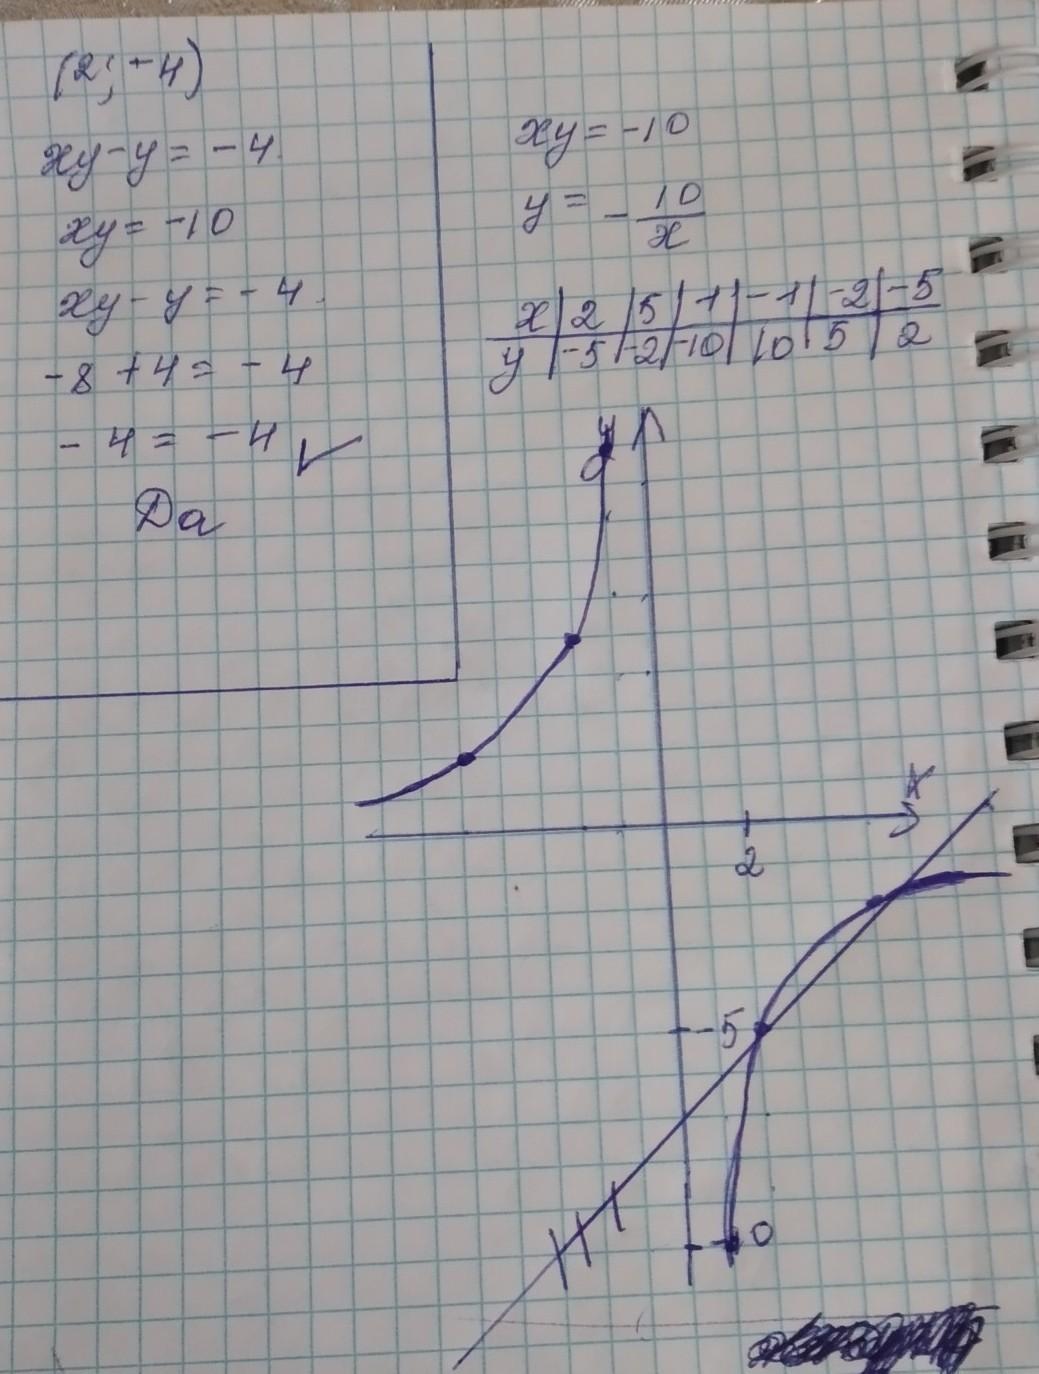 (2; -4)
xy - y = -4
xy = -10
xy - y = -4
-8 + 4 = -4
-4 = -4 ✓
Da
xy = -10
y = - 10/x
x | 2 | 5 | 1 | -1 | -2 | -5
y | -5 | -2 | -10 | 10 | 5 | 2
y
x
2
-5